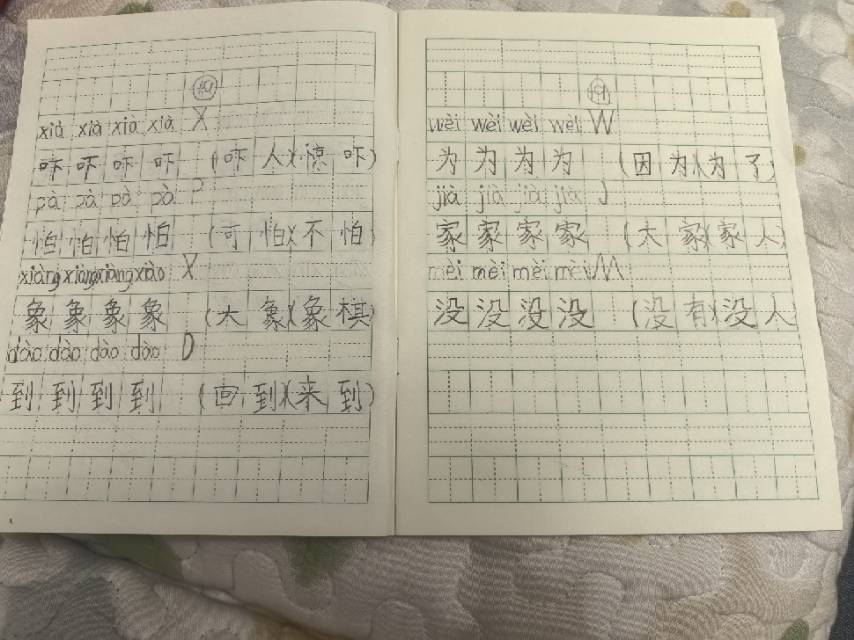 xià xià xià xià X
吓 吓 吓 吓 (吓人)(惊吓)
pà pà pà pà P
怕 怕 怕 怕 (可怕)(不怕)
xiàng xiàng xiàng xiào X
象 象 象 象 (大象)(象棋)
dào dào dào dào D
到 到 到 到 (回到)(来到)
wèi wèi wèi wèi W
为 为 为 为 (因为)(为了)
jià jià jià jià J
家 家 家 家 (大家)(家人)
mèi mèi mèi mèi M
没 没 没 没 (没有)(没人)